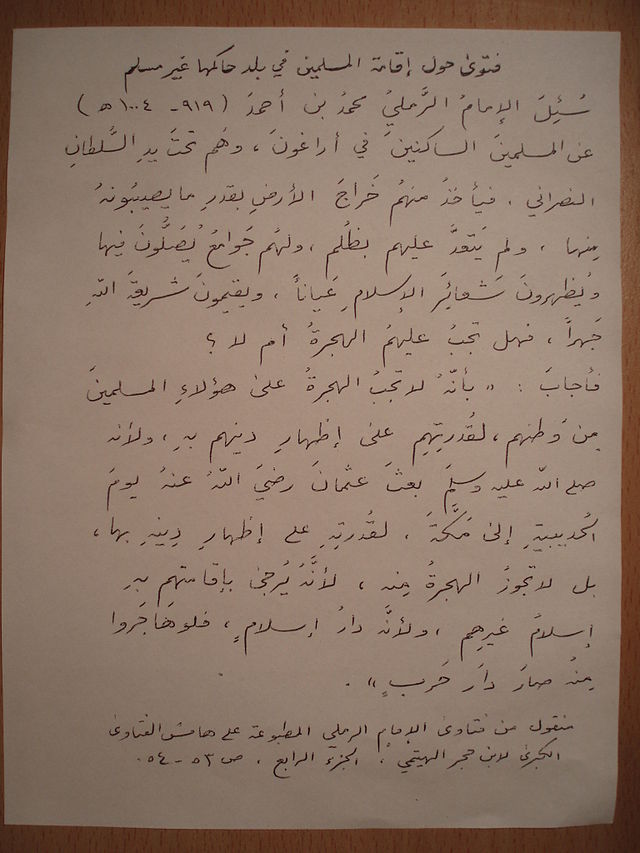 فتوى حول إقامة المسلمين في بلد حاكمها غير مسلم
سُئِلَ الإمامُ الرَّمليُ محمدُ بن أحمدَ (٩١٩ - ١٠٠٤ هـ)
عن المسلمينَ الساكنينَ في أراغونَ، وهُم تحتَ يدِ السُّلطانِ
النصراني، فيأخذُ منهُم خَراجَ الأرضِ بقدرِ ما يصيبُونهُ
مِنها، ولم يَتَعَدَّ عليهم بظُلم، ولهُم جَوامعُ يُصَلُّونَ فيها
ويُظهرونَ شَعائِرَ الإسلامِ عَياناً، ويقيمونَ شريعَةَ اللهِ
جَهراً، فهل تجبُ عليهمُ الهجرةُ أم لا؟
فأجابَ: «بأنّهُ لا تجبُ الهجرةُ على هؤلاءِ المسلمينَ
مِن وَطنهم، لقُدرتِهِم على إظهارِ دينهم بهِ، ولأنه
صلى الله عليه وسلم بعثَ عثمانَ رضيَ اللهُ عنهُ يومَ
الحُديبيةِ إلى مَكَّةَ، لقُدرتِهِ على إظهارِ دِينهِ بها،
بل لا تجوزُ الهجرةُ مِنه، لأنَّهُ يُرجى بإقامتهم بهِ
إسلامُ غيرِهِم، ولأنَّه دارُ إسلامٍ، فلو هَاجَروا
مِنهُ صارَ دارَ حَربٍ».
منقول من فتاوى الإمام الرملي المطبوعة على هامش الفتاوى
الكبرى لابن حجر الهيتمي، الجزء الرابع، ص ٥٣ - ٥٤.